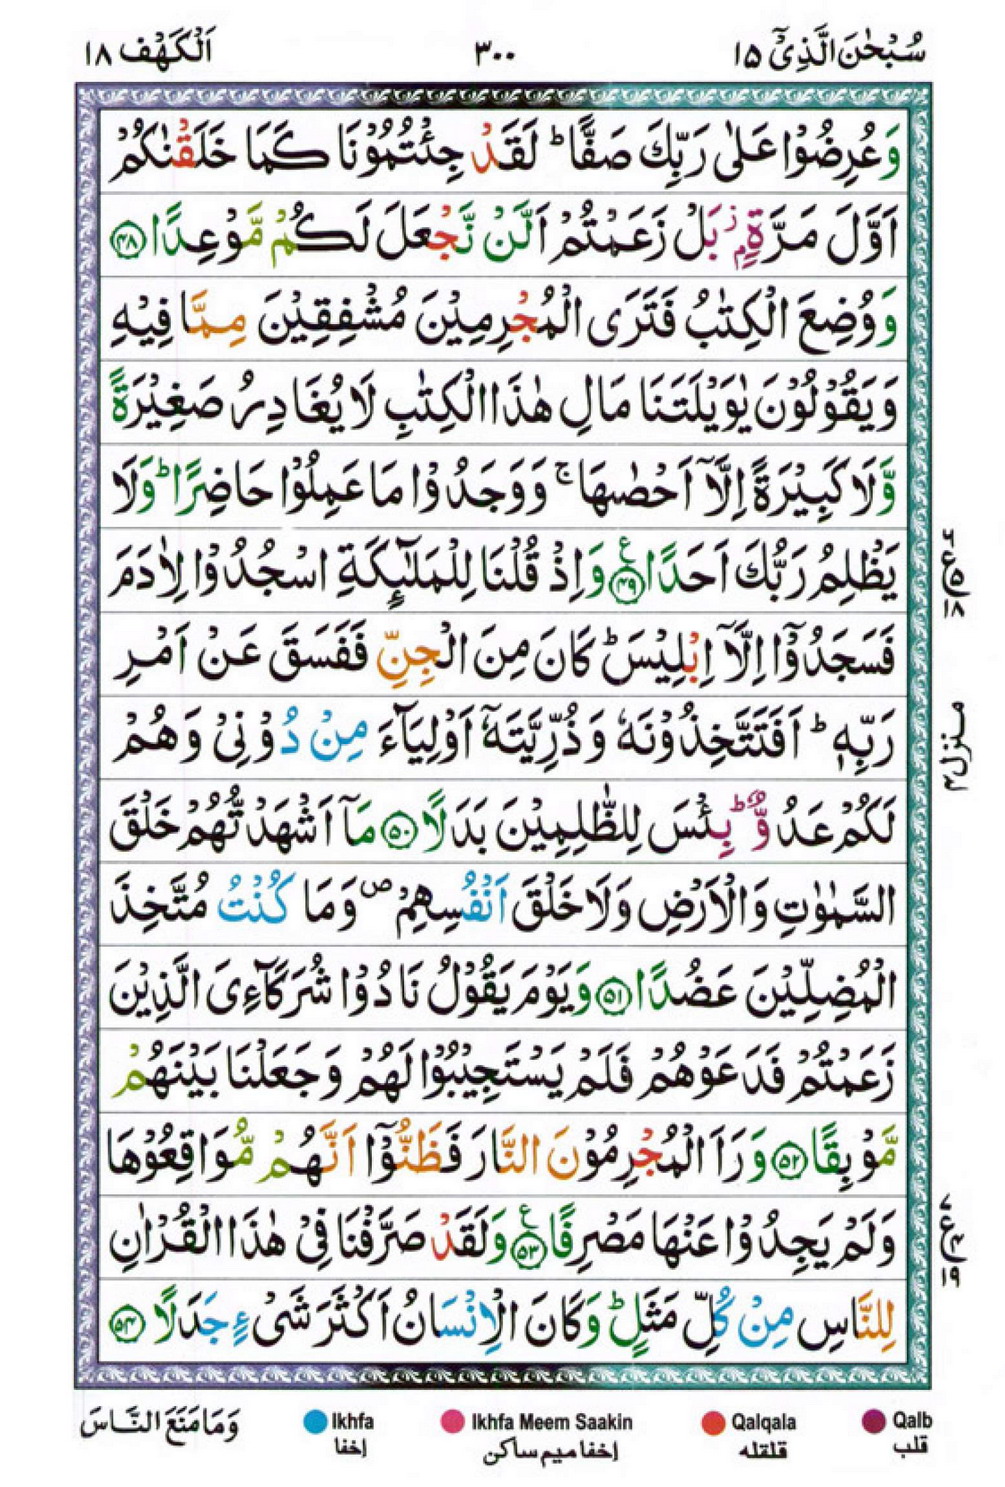 سُبْحٰنَ الَّذِیْۤ ۱۵ ۳۰۰ اَلْكَهْف ۱۸
وَعُرِضُوْا عَلٰی رَبِّكَ صَفًّا ؕ لَقَدْ جِئْتُمُوْنَا كَمَا خَلَقْنٰكُمْ
اَوَّلَ مَرَّةٍۭ ؗ بَلْ زَعَمْتُمْ اَلَّنْ نَّجْعَلَ لَكُمْ مَّوْعِدًا ﴿۴۸﴾
وَوُضِعَ الْكِتٰبُ فَتَرَی الْمُجْرِمِیْنَ مُشْفِقِیْنَ مِمَّا فِیْهِ
وَیَقُوْلُوْنَ یٰوَیْلَتَنَا مَالِ هٰذَا الْكِتٰبِ لَا یُغَادِرُ صَغِیْرَةً
وَّلَا كَبِیْرَةً اِلَّاۤ اَحْصٰىهَا ۚ وَوَجَدُوْا مَا عَمِلُوْا حَاضِرًا ؕ وَلَا
یَظْلِمُ رَبُّكَ اَحَدًا ﴿۴۹﴾ع وَاِذْ قُلْنَا لِلْمَلٰٓىِٕكَةِ اسْجُدُوْا لِاٰدَمَ
فَسَجَدُوْۤا اِلَّاۤ اِبْلِیْسَ ؕ كَانَ مِنَ الْجِنِّ فَفَسَقَ عَنْ اَمْرِ
رَبِّهٖ ؕ اَفَتَتَّخِذُوْنَهٗ وَذُرِّیَّتَهٗۤ اَوْلِیَآءَ مِنْ دُوْنِیْ وَهُمْ
لَكُمْ عَدُوٌّ ؕ بِئْسَ لِلظّٰلِمِیْنَ بَدَلًا ﴿۵۰﴾ مَاۤ اَشْهَدْتُّهُمْ خَلْقَ
السَّمٰوٰتِ وَالْاَرْضِ وَلَا خَلْقَ اَنْفُسِهِمْ ۪ وَمَا كُنْتُ مُتَّخِذَ
الْمُضِلِّیْنَ عَضُدًا ﴿۵۱﴾ وَیَوْمَ یَقُوْلُ نَادُوْا شُرَكَآءِیَ الَّذِیْنَ
زَعَمْتُمْ فَدَعَوْهُمْ فَلَمْ یَسْتَجِیْبُوْا لَهُمْ وَجَعَلْنَا بَیْنَهُمْ
مَّوْبِقًا ﴿۵۲﴾ وَرَاَ الْمُجْرِمُوْنَ النَّارَ فَظَنُّوْۤا اَنَّهُمْ مُّوَاقِعُوْهَا
وَلَمْ یَجِدُوْا عَنْهَا مَصْرِفًا ﴿۵۳﴾ع وَلَقَدْ صَرَّفْنَا فِیْ هٰذَا الْقُرْاٰنِ
لِلنَّاسِ مِنْ كُلِّ مَثَلٍ ؕ وَكَانَ الْاِنْسَانُ اَكْثَرَ شَیْءٍ جَدَلًا ﴿۵۴﴾
۶ ع ۵ ۱۸
منزل ۴
۷ ع ۴ ۱۹
Qalb Qalqala Ikhfa Meem Saakin Ikhfa وَمَا مَنَعَ النَّاسَ
قلب قلقله إخفا ميم ساكن إخفا